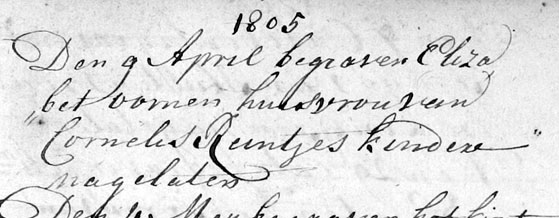 1805
Den 9 April begraven Eliza
bet oomen huisvrou van
„ Cornelis Reintjes kindere "
nagelaten
Den